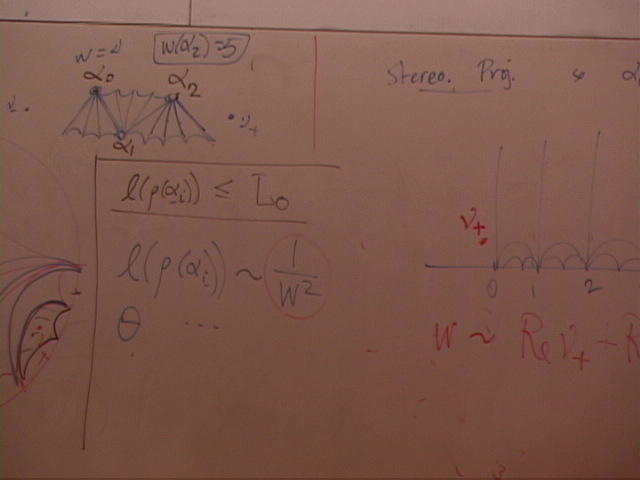 w = 4 w(α₂) = 5
α₀ α₂
α₁
ν₊
l(ρ(αᵢ)) ≤ L₀
l(ρ(αᵢ)) ~ 1/W²
θ ...
Stereo. Proj.
ν₊
0 1 2
W ~ Re ν₊ - R